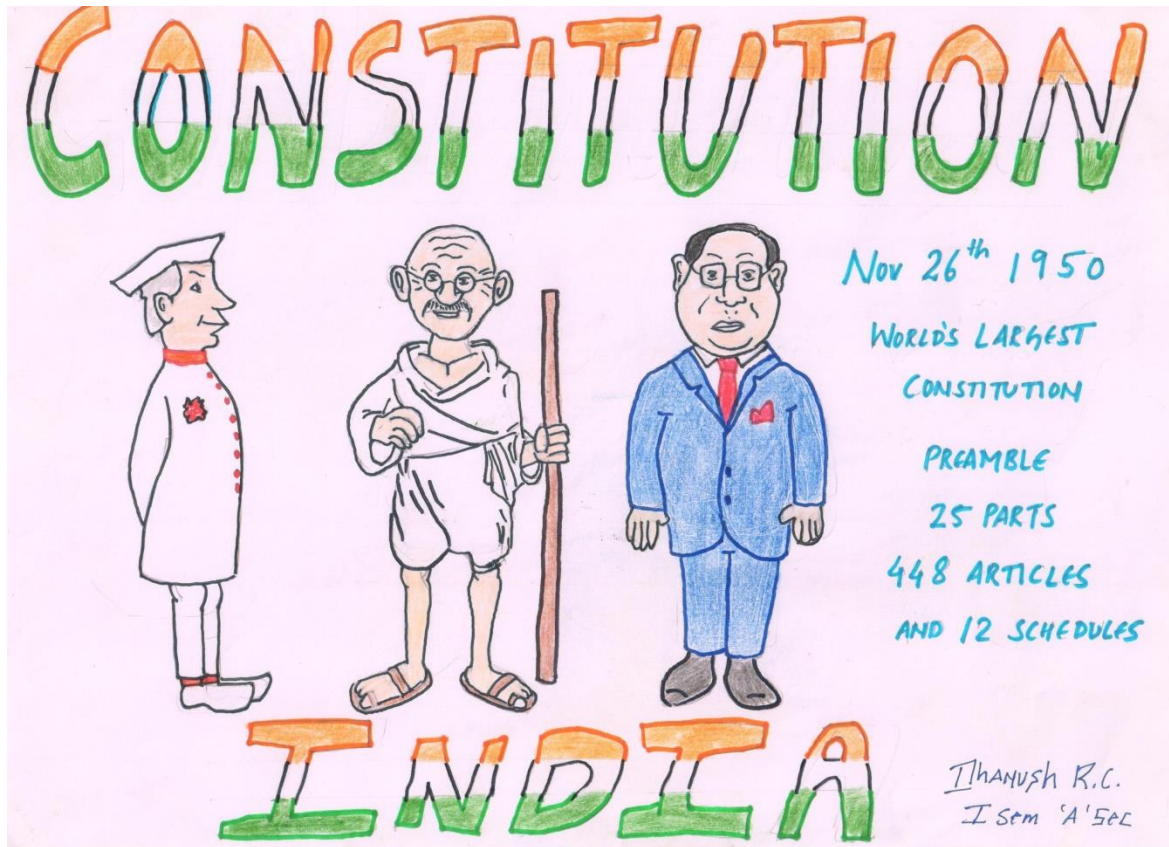 CONSTITUTION
Nov 26th 1950
WORLD'S LARGEST
CONSTITUTION
PREAMBLE
25 PARTS
448 ARTICLES
AND 12 SCHEDULES
INDIA
Dhanush R.C.
I Sem 'A' Sec